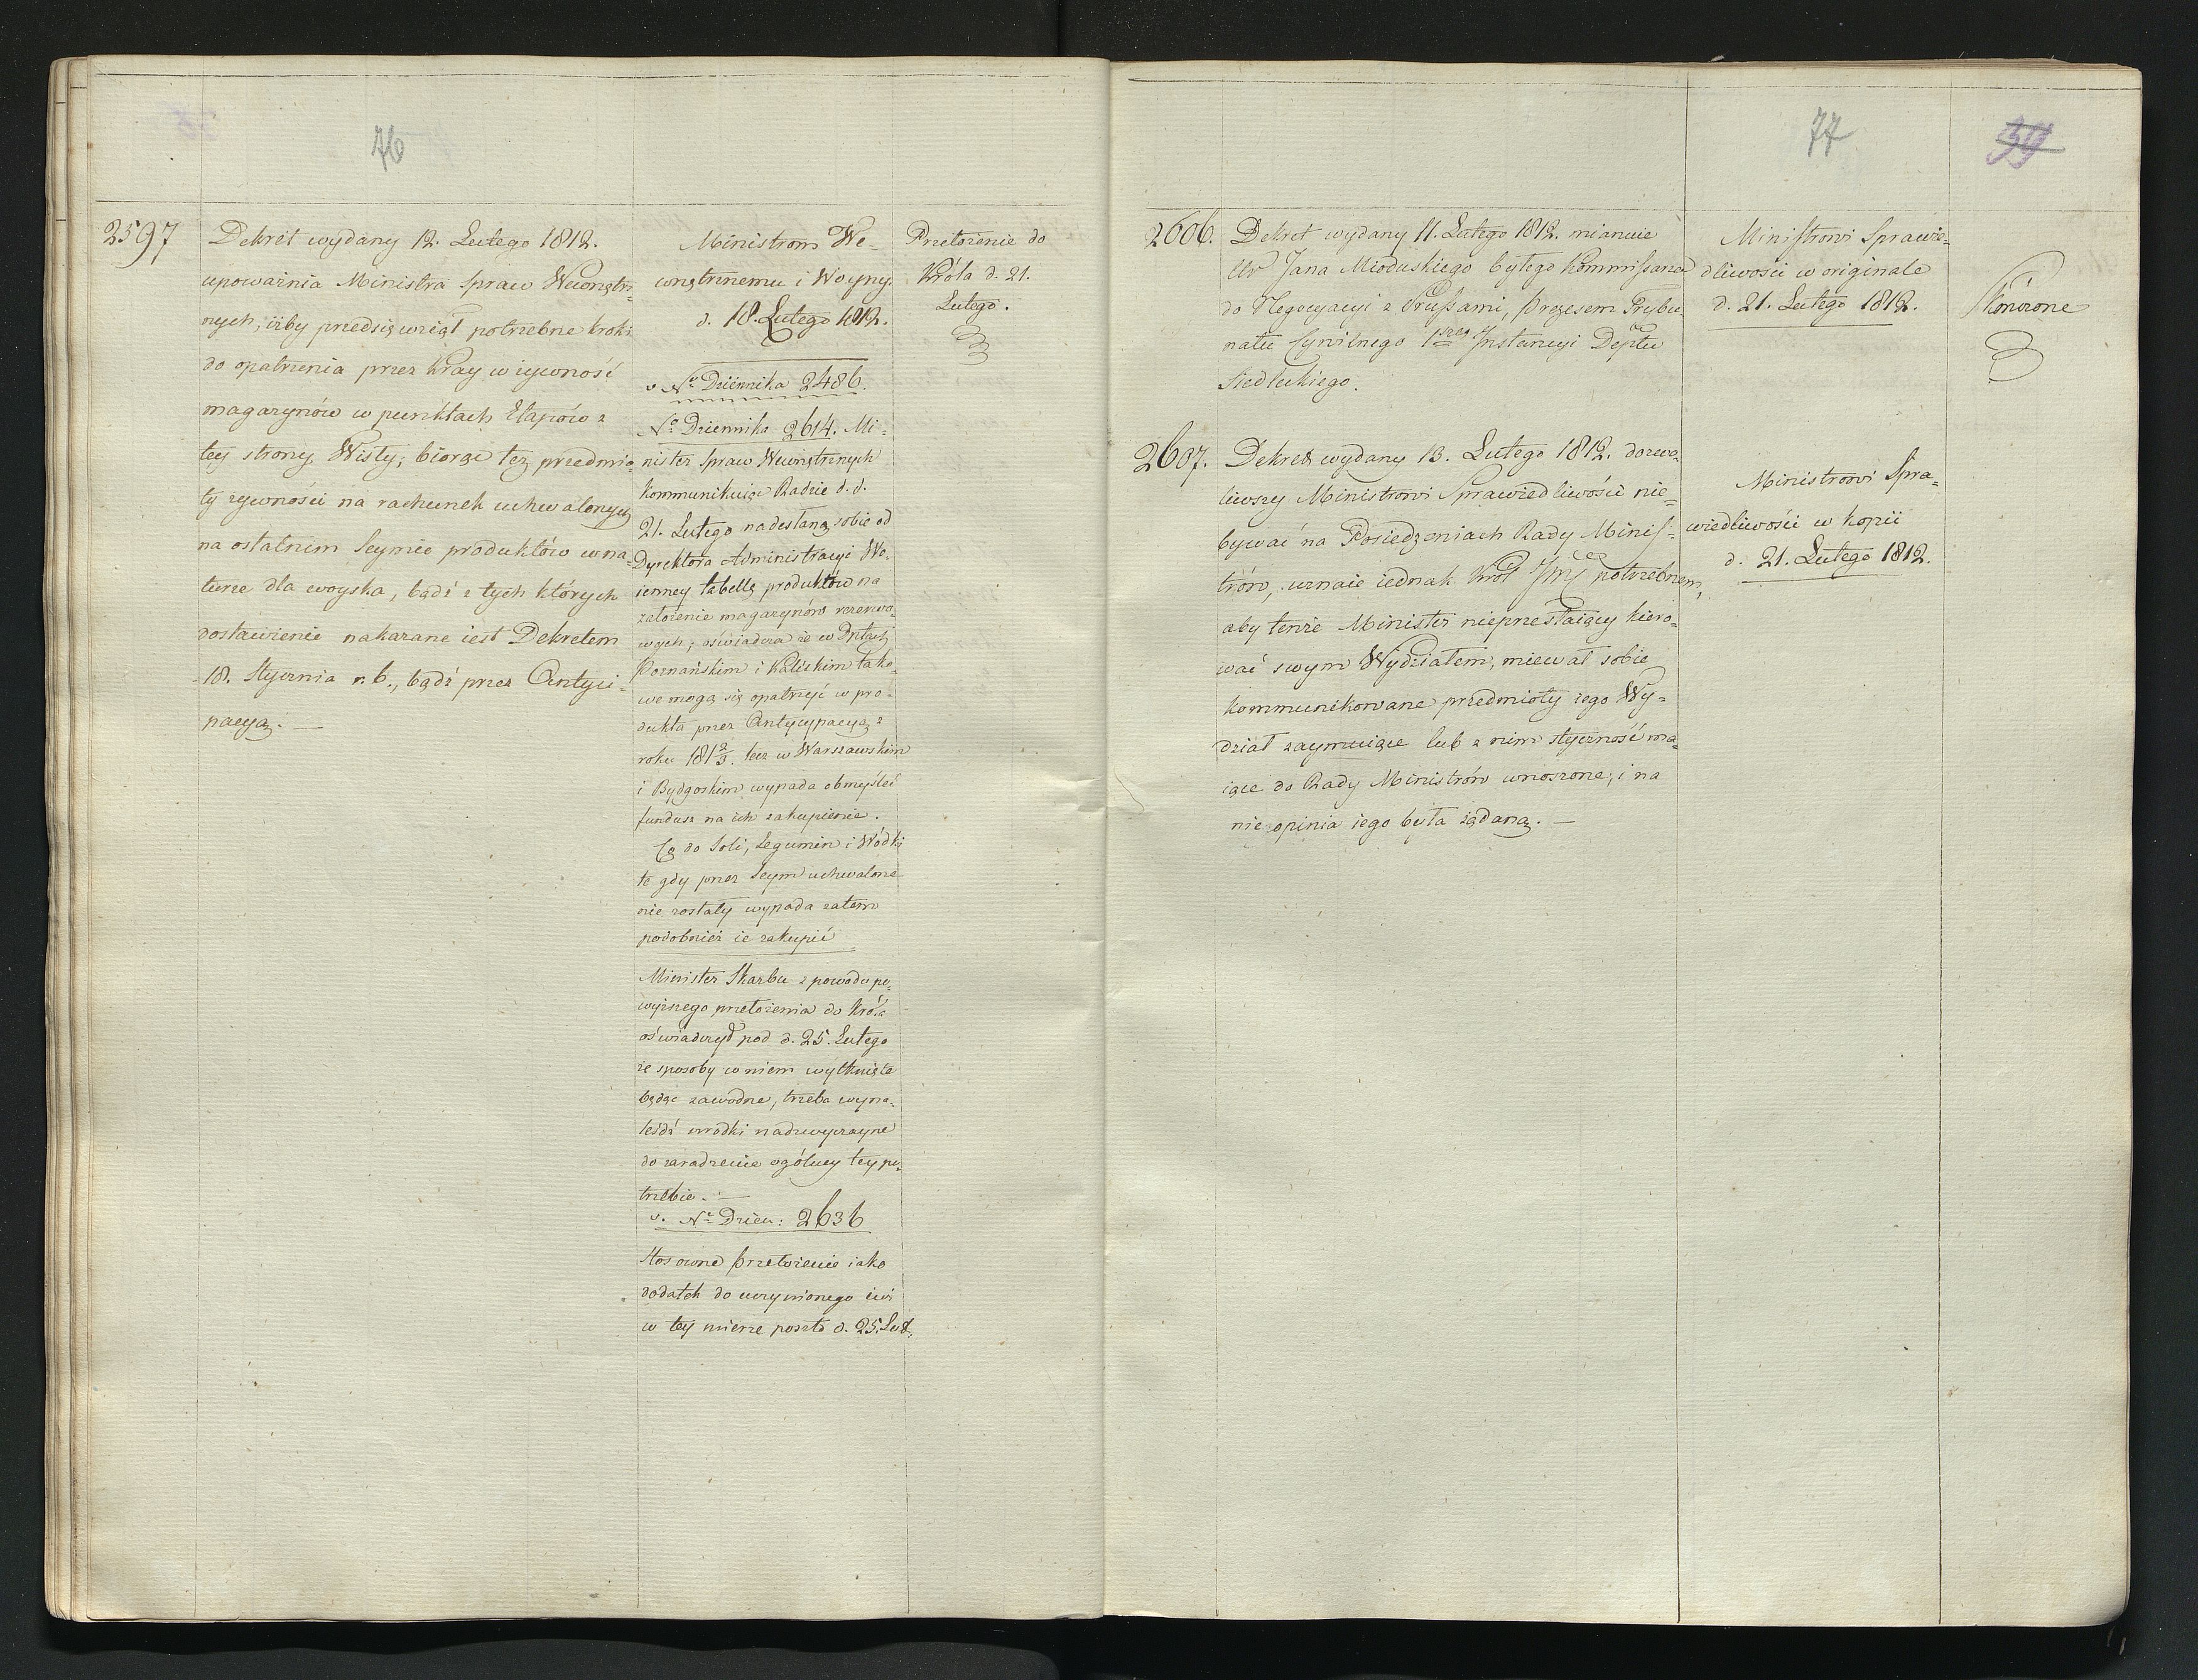 76
2597
Dekret wydany 12. Lutego 1812.
upoważnia Ministra Spraw Wewnętrz-
nych, iżby przedsięwziął potrzebne kroki
do opatrzenia przez Kray w żywność
magazynów w punktach Etapów z
tey strony Wisły; biorąc tęż przedmio-
ty żywności na rachunek uchwalonych
na ostatnim Seymie produktów w na-
turze dla woyska, bądź z tych których
dostawienie nakazane iest Dekretem
18. Stycznia r. b., bądź przez Antyci-
pacyą. —
Ministrom We-
wnętrznemu i Woyny.
d. 18. Lutego 1812.
v. No Dziennika 2486.
No Dziennika 2614. Mi-
nister Spraw Wewnętrznych
kommunikuiąc Radzie d. d.
21. Lutego nadesłaną sobie od
Dyrektora Administracyi Wo-
ienney tabellę produktów na
założenie magazynów rezerwo-
wych; oświadcza że w Dptach
Poznańskim i Kaliskim tako-
we mogą się opatrzyć w pro-
dukta przez Antycypacyą z
roku 181 2/3. lecz w Warszawskim
i Bydgoskim wypada obmyśleć
fundusz na ich zakupienie.
Co do Soli, Legumin i Wódki
te gdy przez Seym uchwalone
nie zostały wypada zatem
podobnież ie zakupić
Minister Skarbu z powodu po-
wyższego przełożenia do Króla
oświadczył pod d. 25. Lutego
że sposoby w niem wytknięte
będąc zawodne, trzeba wyna-
leśdź środki nadzwyczayne
do zaradzenia ogólney tey po-
trzebie. —
v. No Dzien: 2636
Stosowne przełożenie iako
dodatek do uczynionego iuż
w tey mierze poszło d. 25. Lut.
Przełożenie do
Króla d. 21.
Lutego.
77
39
2606.
Dekret wydany 11. Lutego 1812. mianuie
Ur Jana Mioduskiego byłego Kommissarza
do Negocyacyi z Prussami, Prezesem Trybu-
natu Cywilnego 1szey Instancyi Deptu
Siedleckiego.
Ministrowi Sprawie-
dliwości w originale
d. 21. Lutego 1812.
Skończone
2607.
Dekret wydany 13. Lutego 1812. dozwo-
liwszy Ministrowi Sprawiedliwości nie-
bywać na Posiedzeniach Rady Minis-
trów, uznaie iednak Król Jmć potrzebnem,
aby tenże Minister nieprzestaiący kiero-
wać swym Wydziałem, miewał sobie
kommunikowane przedmioty iego Wy-
dział zaymuiące lub z nim styczność ma-
iące do Rady Ministrów wnoszone, i na
nie opinia iego była żądaną. —
Ministrowi Spra-
wiedliwości w kopii
d. 21. Lutego 1812.